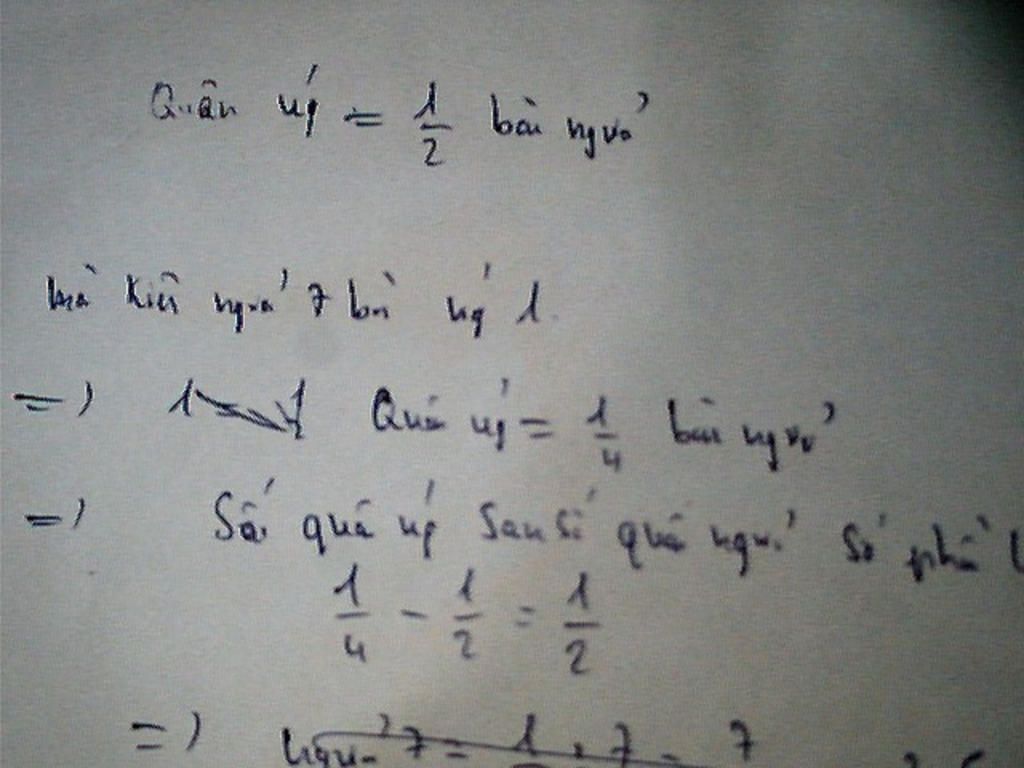 Quân úp = 1/2 bài ngửa
mà Kiên ngửa 7 bài úp 1
=> Quân úp = 1/4 bài ngửa
=> Số quân úp sau số quân ngửa số phần
1/4 - 1/2 = 1/2
=> 7 = 1 . 7 = 7